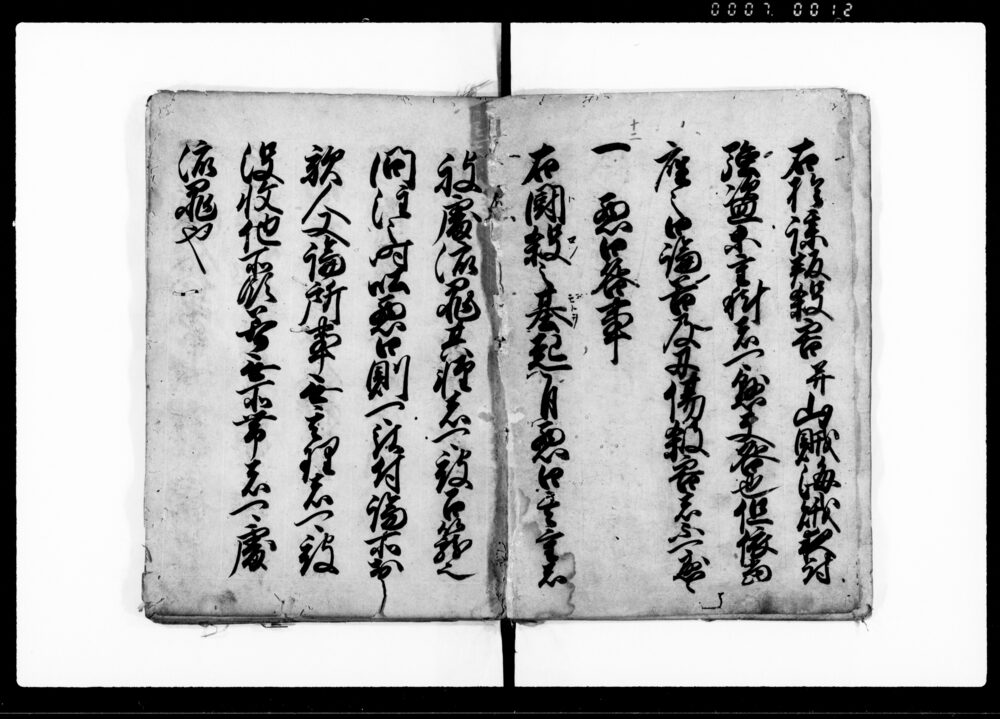 0007 0012
右於謀叛殺害并山賊海賊夜討
強盗等重科者可懸夫咎也但依當
座之口論若及刃傷殺害者不可懸之
十二
一 悪口咎事
右闘殺之基起自悪口其重者
被處流罪其軽者可被召籠也
問注之時吐悪口則可被付論所於
敵人又論所事無其理者可被
没收他所領若無所帯者可處
流罪也